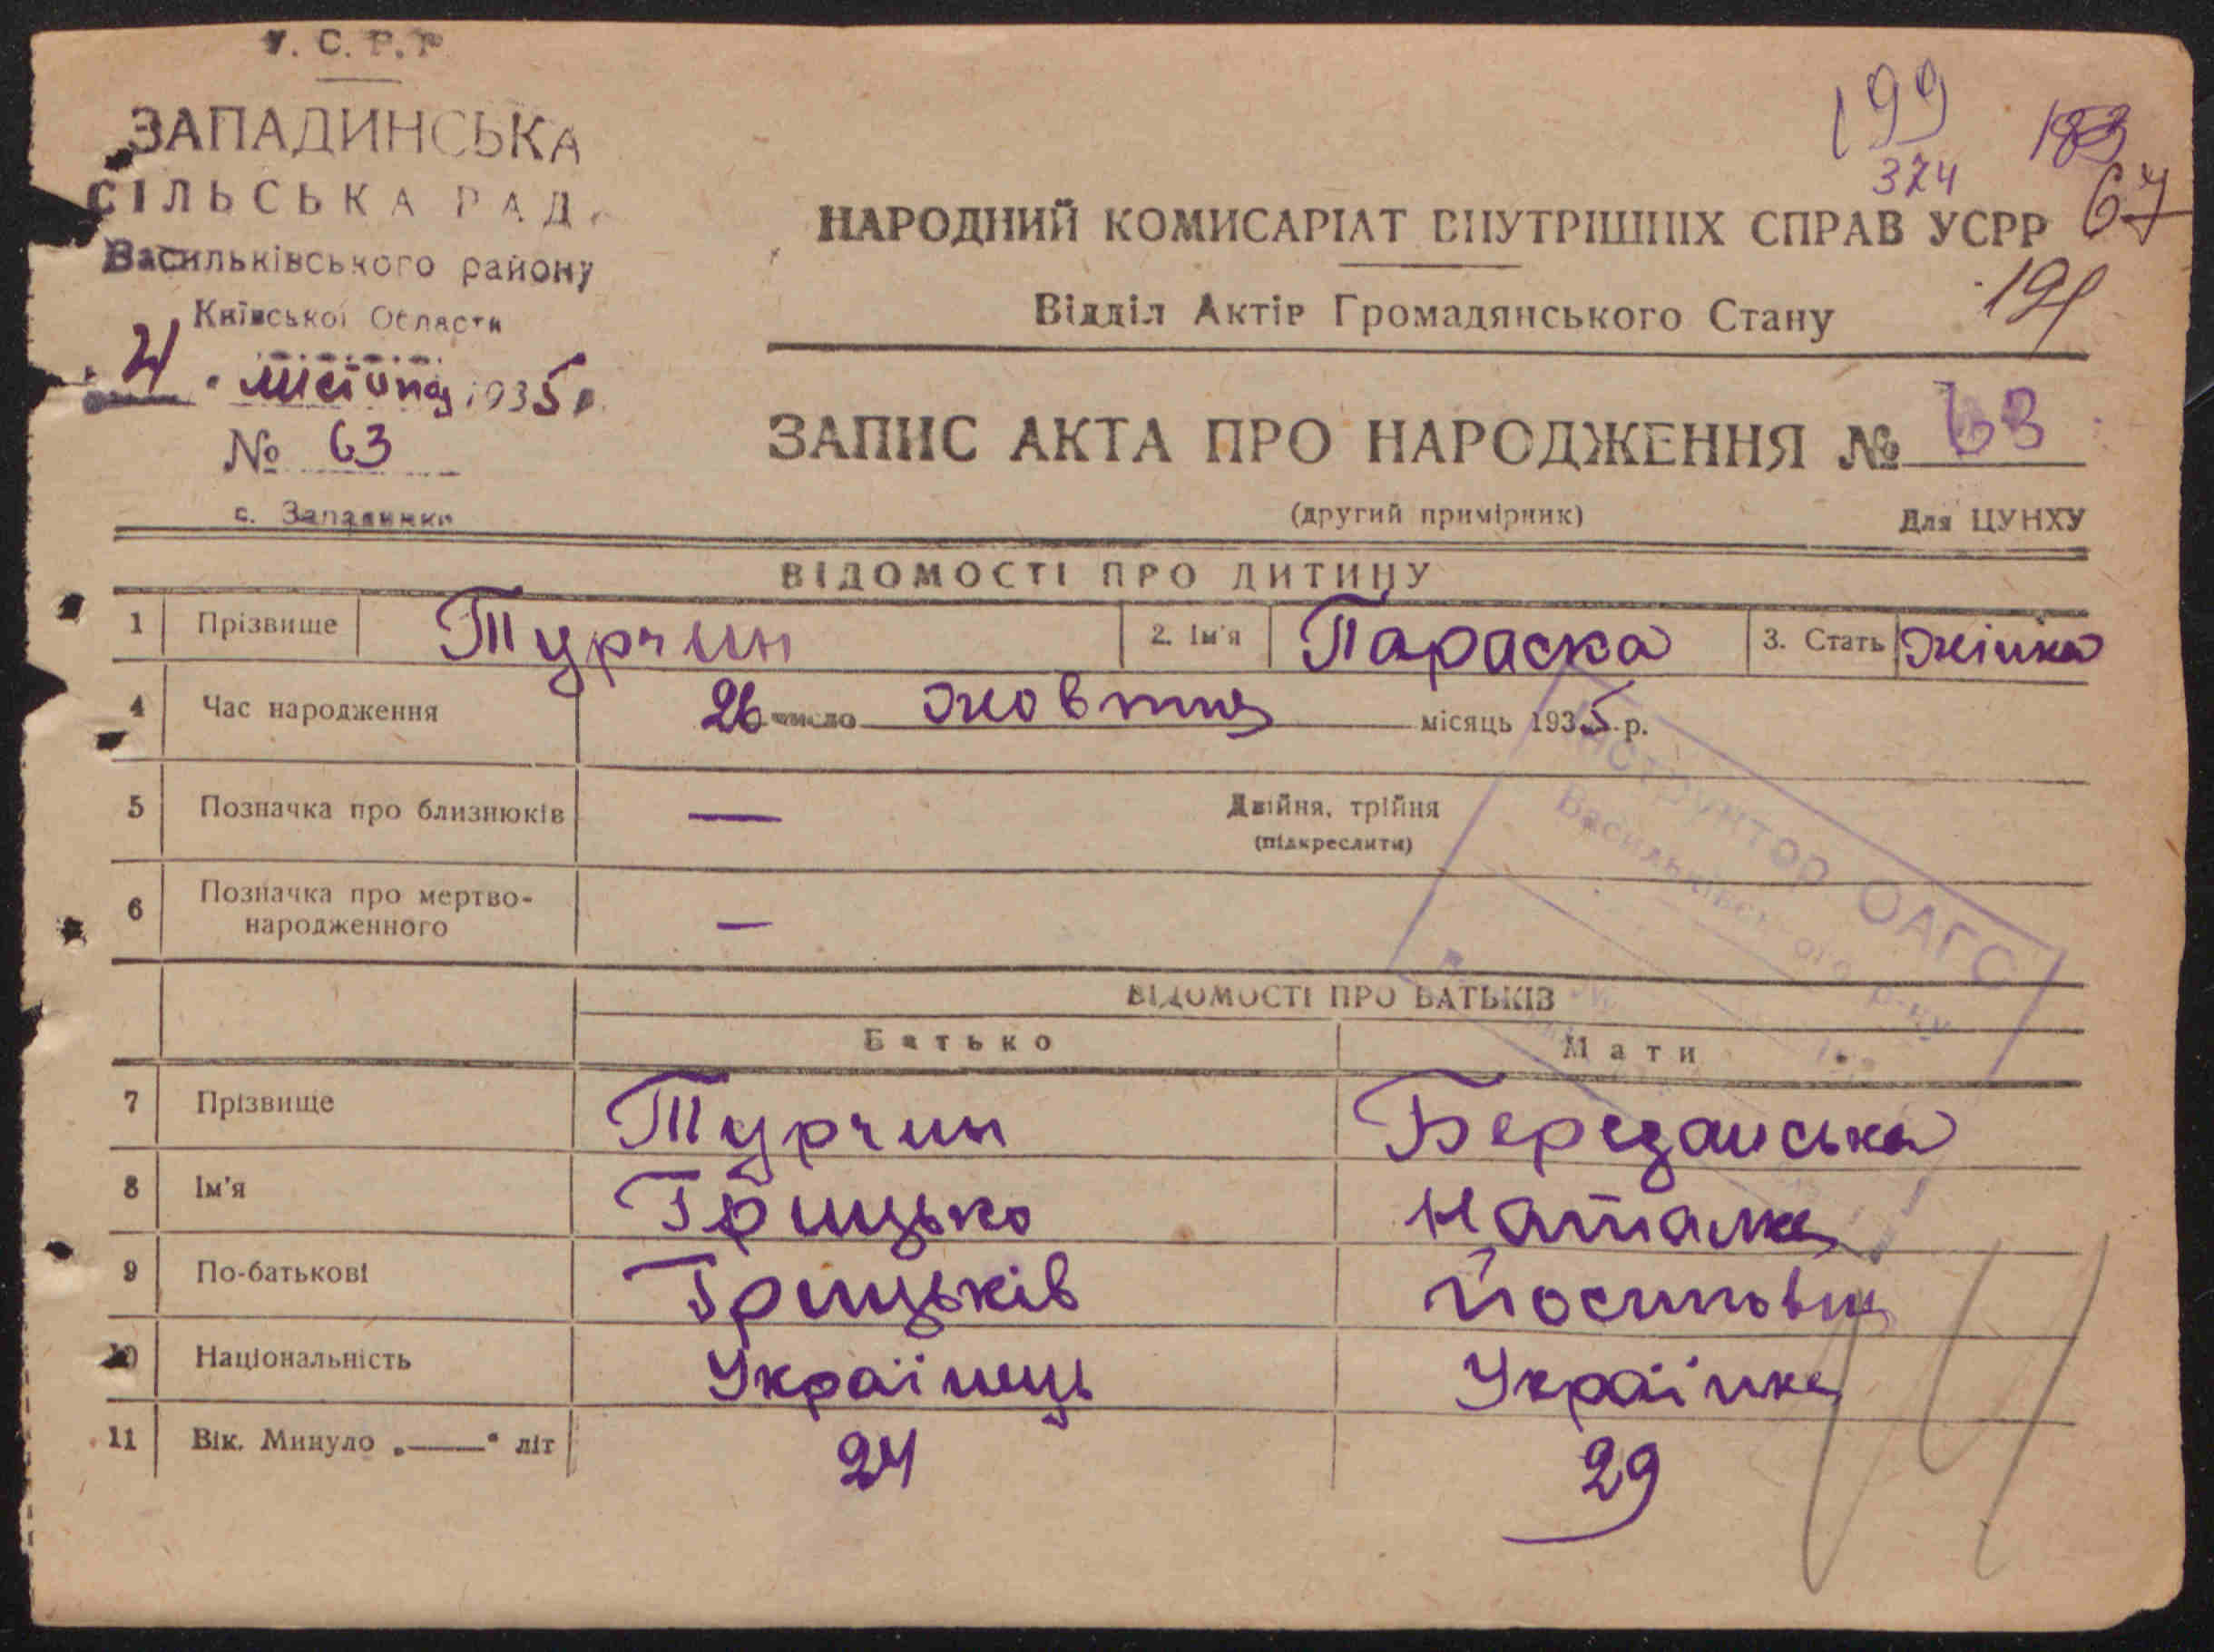 У. С. Р. Р.
ЗАПАДИНСЬКА
СІЛЬСЬКА РАДА
Васильківського району
Київської Области
листопад 1935 р.
№ 63
с. Западинка
199
183
374
67
НАРОДНИЙ КОМИСАРІАТ ВНУТРІШНІХ СПРАВ УСРР
Відділ Актів Громадянського Стану
ЗАПИС АКТА ПРО НАРОДЖЕННЯ № 63
(другий примірник) Для ЦУНХУ
ВІДОМОСТІ ПРО ДИТИНУ
1 Прізвище Турчин 2. Ім'я Параска 3. Стать жінка
4 Час народження 26 число жовтня місяць 1935 р.
5 Позначка про близнюків — Двійня, трійня
(підкреслити)
6 Позначка про мертво-
народженного —
Інструктор ОАГС
Васильківського р-ну
ВІДОМОСТІ ПРО БАТЬКІВ
Батько Мати
7 Прізвище Турчин Березанська
8 Ім'я Грицько Наталка
9 По-батькові Грицьків Йосиповна
10 Національність Українець Українка
11 Вік. Минуло „——" літ 24 29